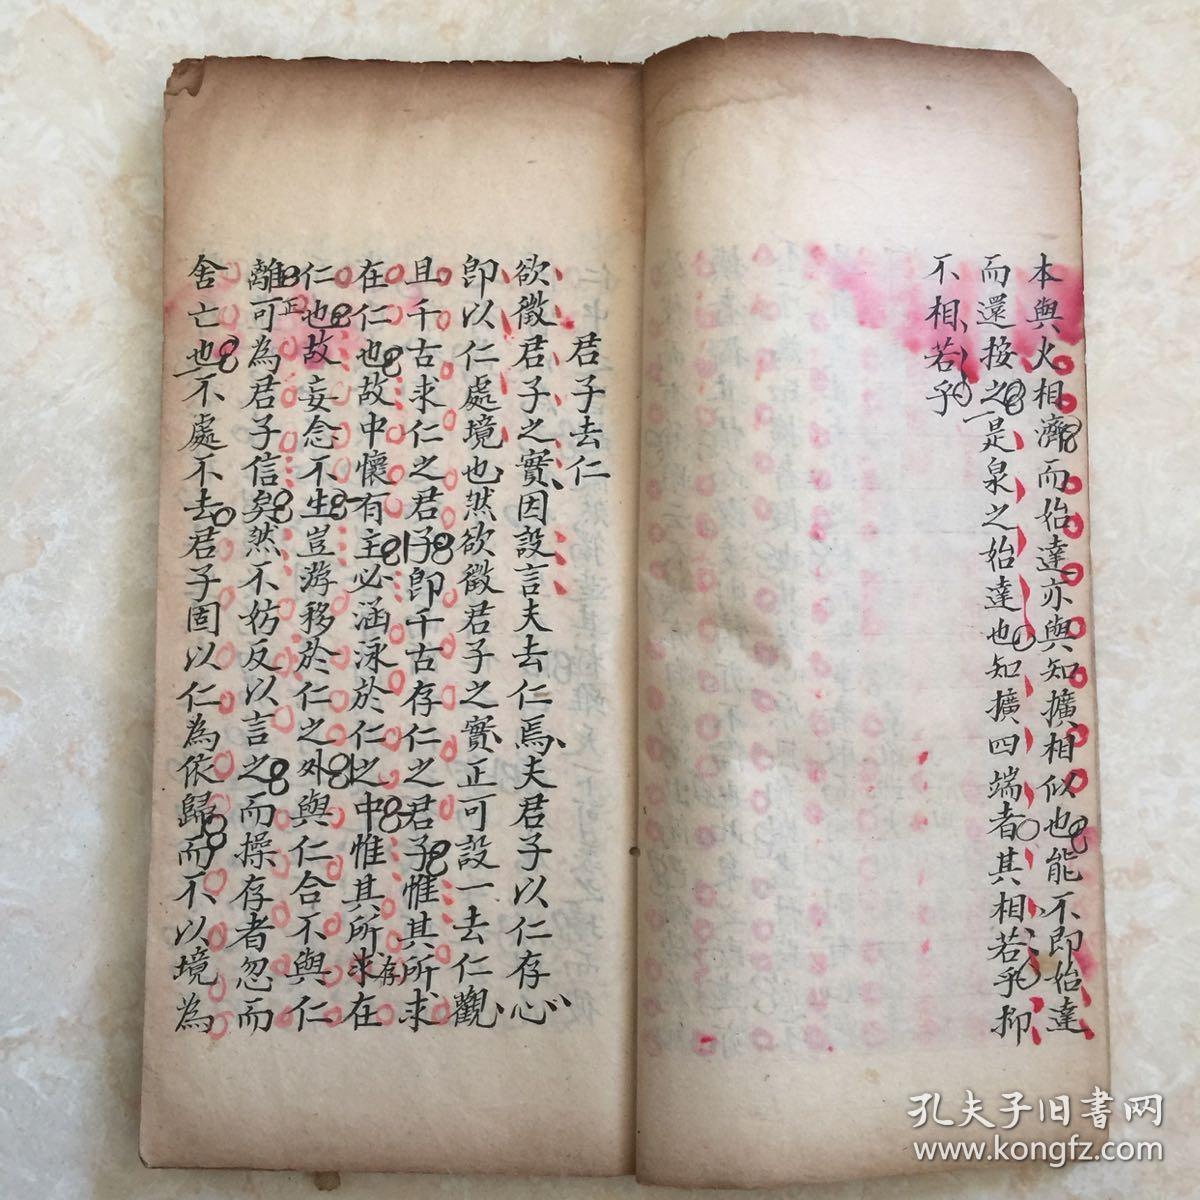 本與火相濟而始達亦與知擴相似也能不即始達
而還按之是泉之始達也知擴四端者其相若乎抑
不相若乎
君子去仁
欲徵君子之實因設言夫去仁焉夫君子以仁存心
即以仁處境也然欲徵君子之實正可設一去仁觀
且千古求仁之君子即千古存仁之君子惟其所求
在仁也故中懷有主必涵泳於仁之中惟其所求在
存
仁也故妄念不生豈游移於仁之外與仁合不與仁
離可為君子信矣然不妨反以言之而操存者忽而
正
舍亡也不處不去君子固以仁為依歸而不以境為
孔夫子旧書网
www.kongfz.com